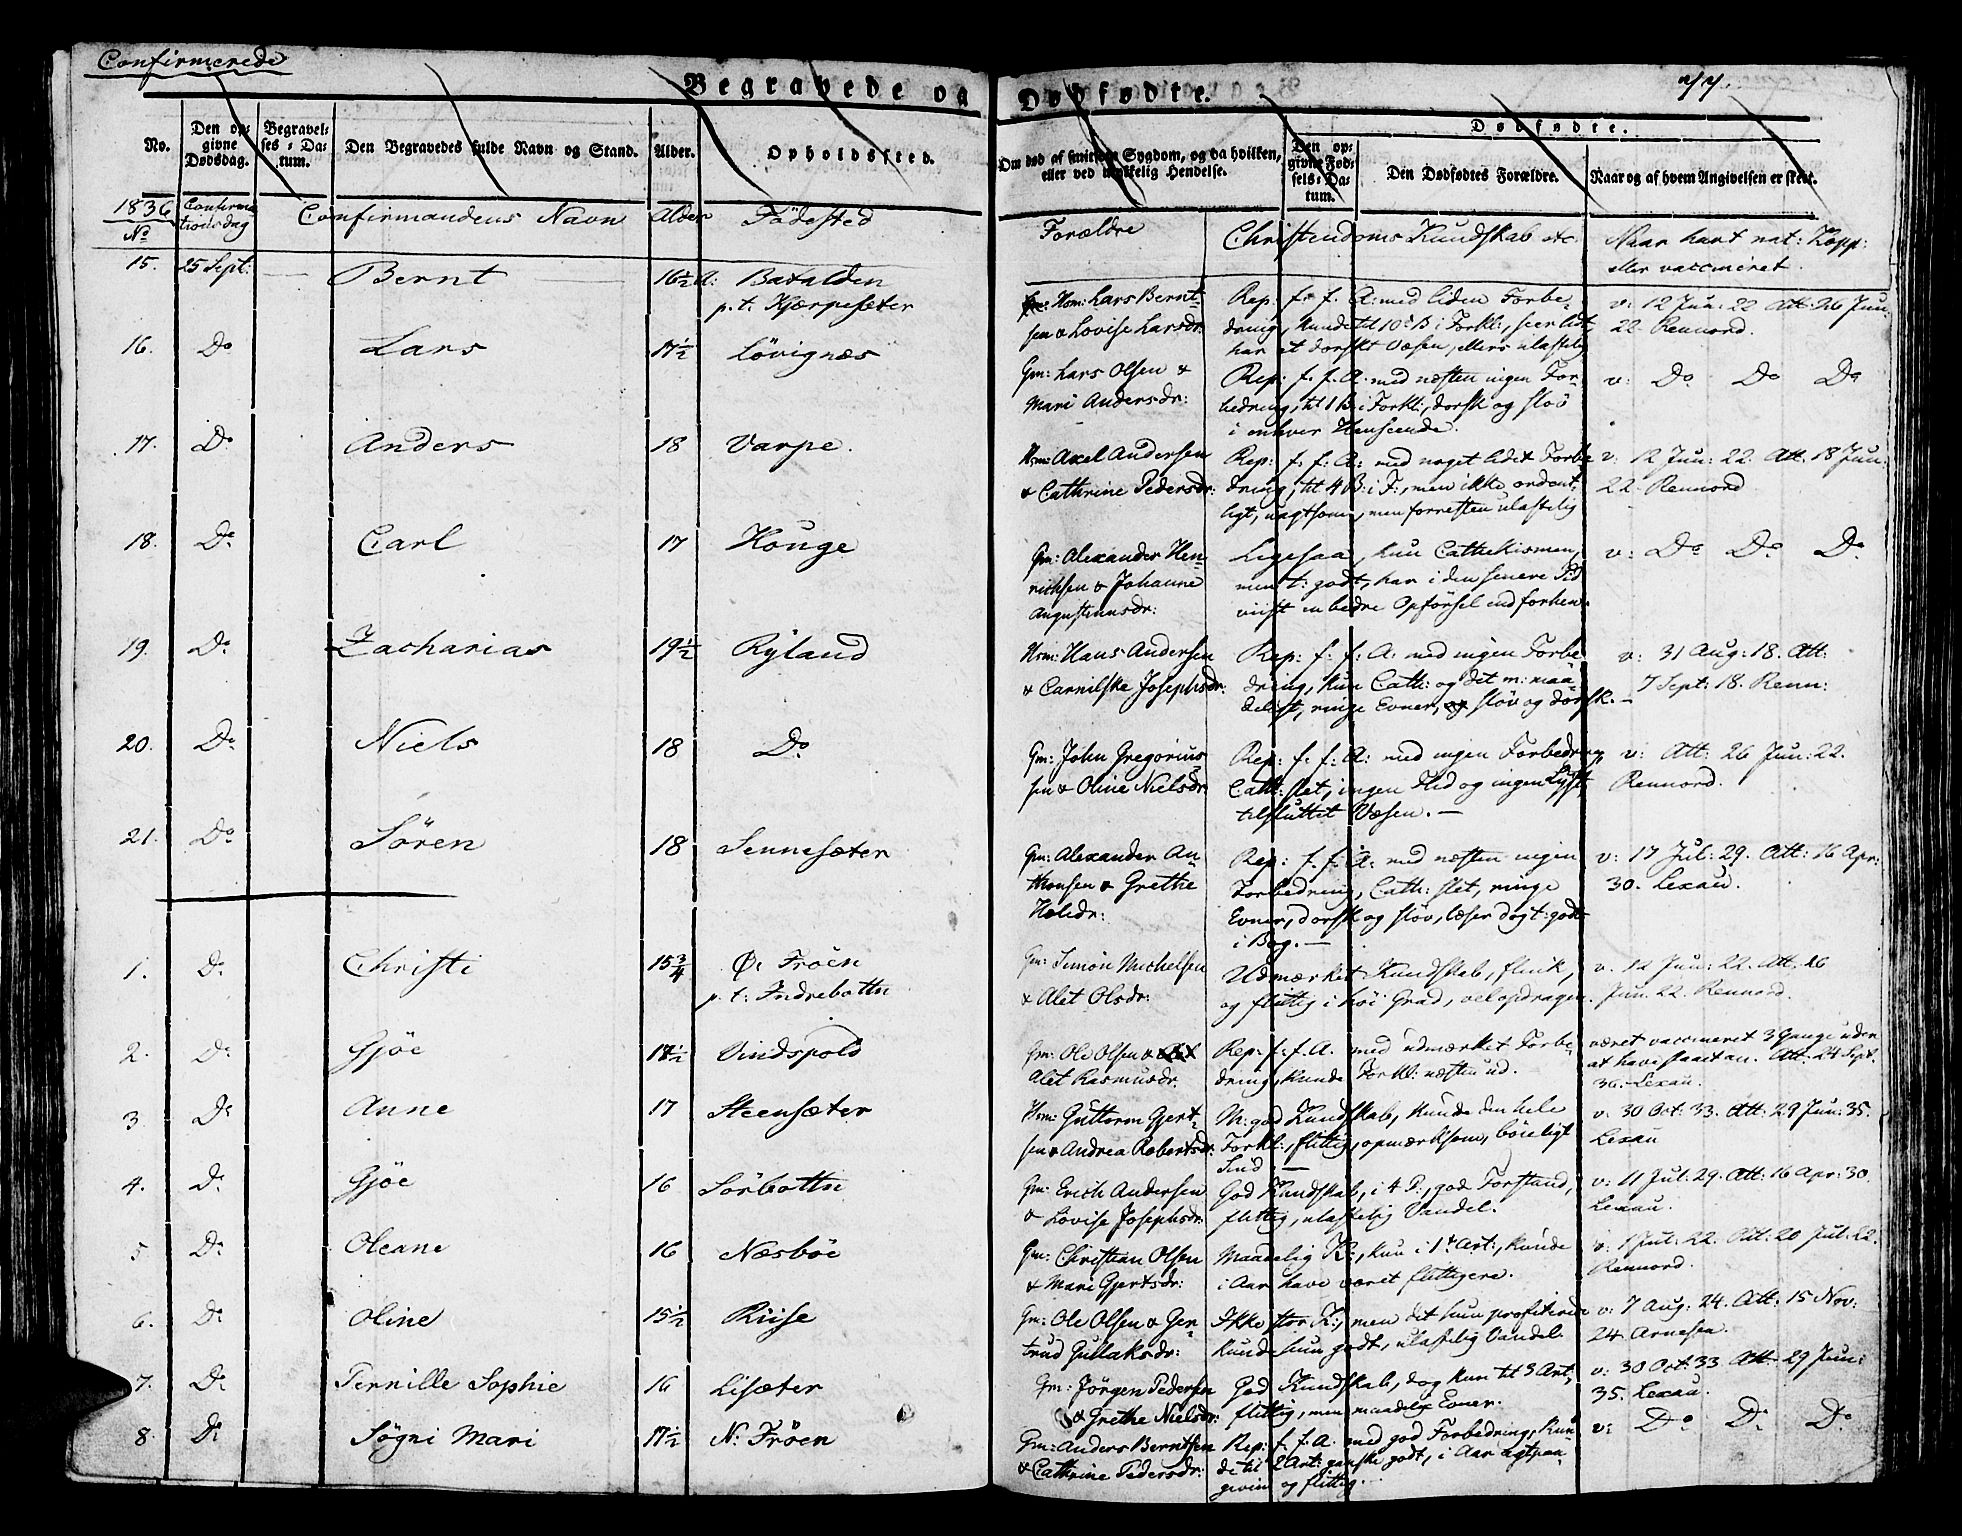 Confirmerede
Begravede og Dødfødte.
77.
No.
Den opgivne Dødsdag.
Begravelses-Datum.
Den Begravedes fulde Navn og Stand.
Alder.
Opholdssted.
Om død af smitsom Sygdom, og da hvilken, eller ved ulykkelig Hendelse.
Dødfødte.
Den opgivne Fødsels-Datum.
Den Dødfødtes Forældre.
Naar og af hvem Angivelsen er skeet.
1836 No Confirmationsdag Confirmandens Navn Alder Födested
Forældre Christendoms Kundskab etc. Naar havt nat: Kopp: eller vaccineret.
15. 25 Sept: Bernt 16½ A: Batalden
p.t: Kjærpesæter
Hsm: Lars Berntsen & Lovise Larsdr:
Rep: f. f. A: med liden Forbedring, kunde til 10de B i Forkl:, seer lidt, har et dorskt Væsen, ellers ulastelig
v: 12 Jun: 22 Att: 26 Jun: 22. Rennord.
16. Do Lars 17½ Lövignæs
Gm: Lars Olsen & Mari Andersdr:
Rep: f. f. A: med næsten ingen Forbedring, til 1 B: i Forkl:, dorsk og slöv i enhver Henseende.
v: Do Do Do
17. Do Anders 18 Varpe.
Hsm: Axel Andersen & Cathrine Pedersdr:
Rep: f: f: A: med noget lidet Forbedring, til 4 B: i F:, men ikke ordentligt, uagtsom, men forresten ulastelig
v: 12 Jun: 22. Att: 18 Jun: 22. Rennord
18. Do Carl 17 Houge
Gm: Alexander Henrichsen & Johanne Augustinusdr:
Ligesaa, kun Cathekismen, men t: godt, har i den senere Tid viist en bedre Opförsel end forhen.
v: Do Do Do
19. Do Zacharias 19½ Ryland
Hsm: Hans Andersen & Carnilske Josephsdr:
Rep: f: f: A: med ingen Forbedring, kun Cath: og det m: maadeligt, ringe Evner, slöv og dorsk. —
v: 31 Aug: 18. Att: 7 Sept: 18. Renn:
20. Do Niels 18 Do
Gm: John Gregoriussen & Oline Nielsdr
Rep: f. f. A: med ingen Forbedring, Cath: slet, ingen Flid og ingen Lyst, tilsluttet Væsen. —
v: Att: 26 Jun: 22. Rennord.
21. Do Sören 18 Sennesæter
Gm: Alexander Anthonsen & Grethe
Rep: f. f. A: med næsten ingen Forbedring, Cath: slet, ringe Evner, dorsk og slöv, læser dogt: godt i Bog. —
v: 17 Jul: 29. Att: 16 Apr: 30. Lexau.
1. Do Christi 15¾ Ø: Fröen
p.t: Indrebottn
Gm: Simon Michelsen & Alet Olsdr:
Udmærket Kundskab, flink, og flittig i höi Grad, vel opdragen.
v. 12 Jun: 22. Att. 26 Jun. 22. Rennord.
2. Do Gjöe 17½ Vindspold
Gm: Ole Olsen & Alet Rasmusdr.
Rep: f: f. A. med udmærket Forbedring, kunde Forkl: næsten ud.
været vaccineret 3 Gange uden at have slaaet an. Att: 24 Sept. 36. Lexau.
3. Do Anne 17 Steensæter
Hsm: Guttorm Gjertsen & Andrea Robertsdr:
M: god Kundskab, kunde den hele Forkl:, flittig, opmærksom, böieligt Sind —
v: 30 Oct: 33. Att: 29 Jun: 35. Lexau
4. Do Gjöe 16 Sörbottn
Gm: Erich Andersen & Lovise Josephsdr:
God Kundskab, i 4 P:, god Forstand, flittig, ulastelig Vandel.
v: 11 Jul: 29. Att: 16 Apr: 30. Lexau.
5. Do Oleane 16 Næsböe
Gm: Christian Olsen & Mari Gjertsdr:
Maadelig K:, kun i 1t Art:, kunde i Aar have været flittigere.
v: 1 Jul: 22. Att: 20 Jul: 22. Rennord.
6. Do Oline 15½ Riise
Gm: Ole Olsen & Gertrud Gullaksdr:
Ikke stor K:, men det hun profiterede kunde hun godt, ulastelig Vandel.
v: 7 Aug: 24. Att: 15 Nov: 24. Arnesen.
7. Do Pernille Sophie 16 Lisæter
Gm: Jörgen Pedersen & Grethe Nielsdr:
God Kundskab, dog kun til 3 Art:, flittig, men maadelige Evner.
v: 30 Oct: 33 Att: 29 Jun: 35. Lexau.
8. Do Sögni Mari 17½ N: Fröen
Gm: Anders Berntsen & Cathrine Pedersdr:
Rep: f. f. A. med god Forbedring, kunde til 2 Art: ganske godt, i Aar agtpaagiven og flittig.
v: Do Do Do